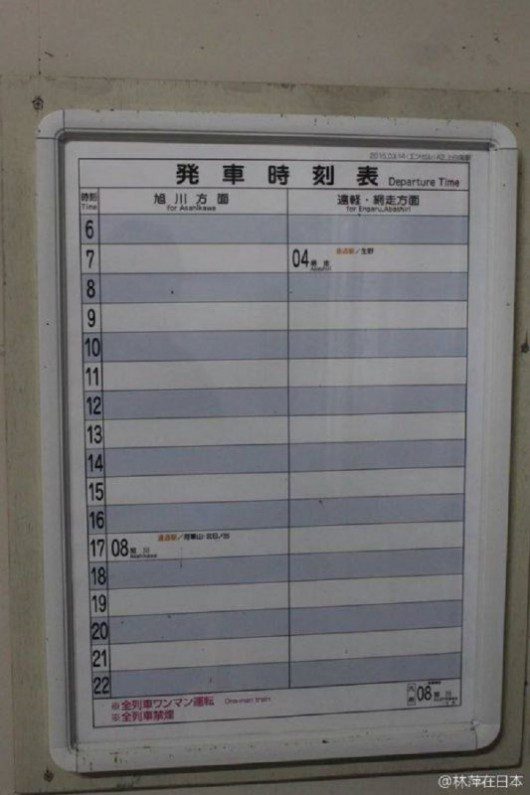 発車時刻表 Departure Time
時刻 旭川方面 遠軽・網走方面
Time for Asahikawa for Engaru,Abashiri
6
7 04 網走 通過駅／生野
Abashiri
8
9
10
11
12
13
14
15
16
17 08 旭川 通過駅／
Asahikawa
18
19
20
21
22
※全列車ワンマン運転 One-man train
※全列車禁煙
08
@林萍在日本